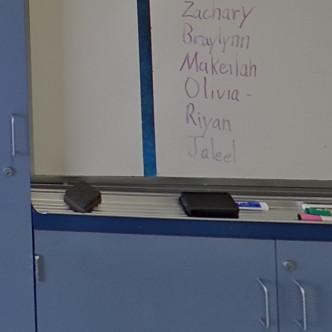 Zachary
Braylynn
Makeilah
Olivia -
Riyan
Jaleel